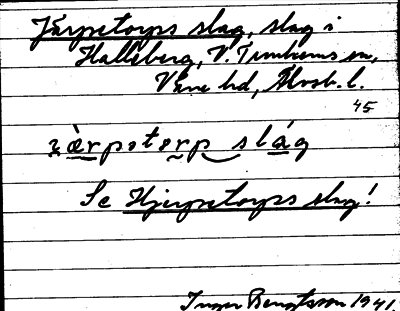 Järpetorps slag, slag i
Halleberg, V. Tunhems sn,
Väne hd, Älvsb. l.
45
jàrpetorp slág
Se Hjerpetorps slag!
Inger Bengtsson 1941.